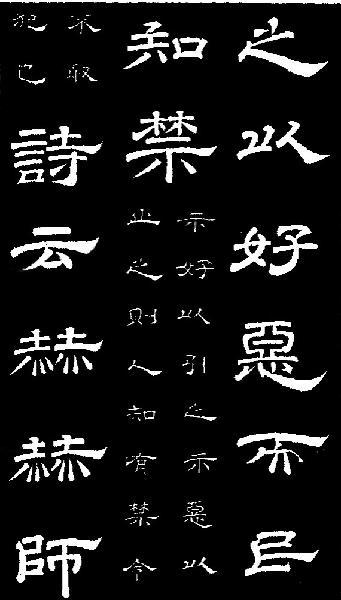 之以好惡而民
知禁
示好以引之示惡以
止之則人知有禁令
不敢
犯也
詩云赫赫師